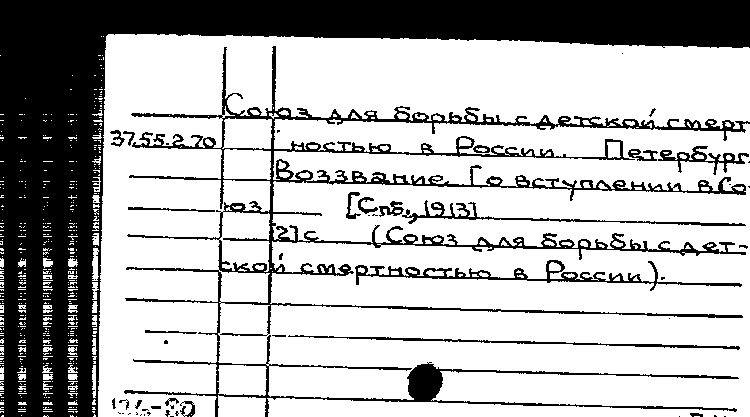 Союз для борьбы с детской смерт
37.55.2.70 ностью в России. Петербург.
Воззвание. [о вступлении в Со
юз [Спб., 1913]
[2] с (Союз для борьбы с дет-
ской смертностью в России).